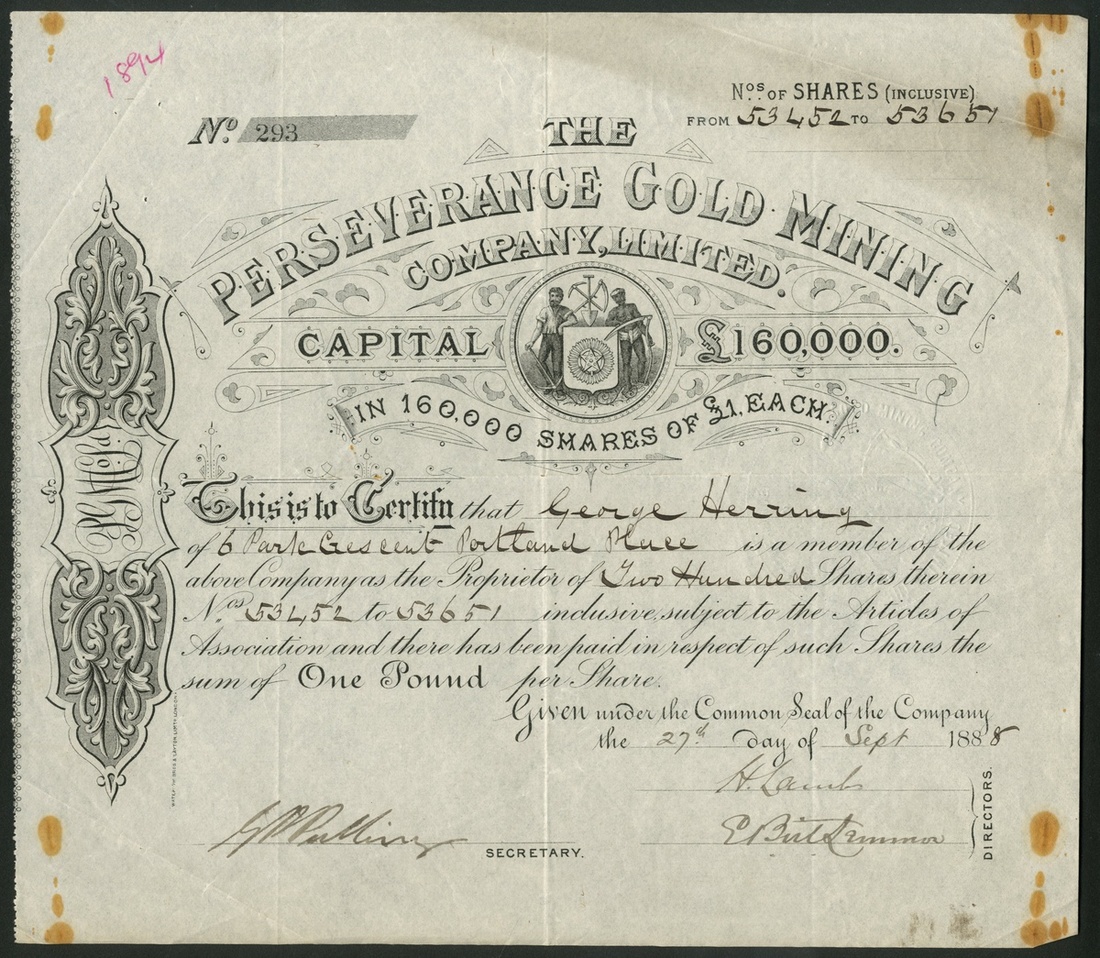 1894
Nos. OF SHARES (INCLUSIVE)
FROM 53452 TO 53651
No. 293
THE
PERSEVERANCE GOLD MINING
COMPANY, LIMITED.
CAPITAL £160,000.
IN 160,000 SHARES OF £1, EACH.
This is to Certify that George Herring
of 6 Park Crescent Portland Place is a member of the
above Company as the Proprietor of Two Hundred Shares therein
Nos. 53452 to 53651 inclusive, subject to the Articles of
Association and there has been paid in respect of such Shares the
sum of One Pound per Share.
Given under the Common Seal of the Company
the 27th day of Sept 1888
H. Lamb
SECRETARY.
DIRECTORS.
P.G.M.Co.